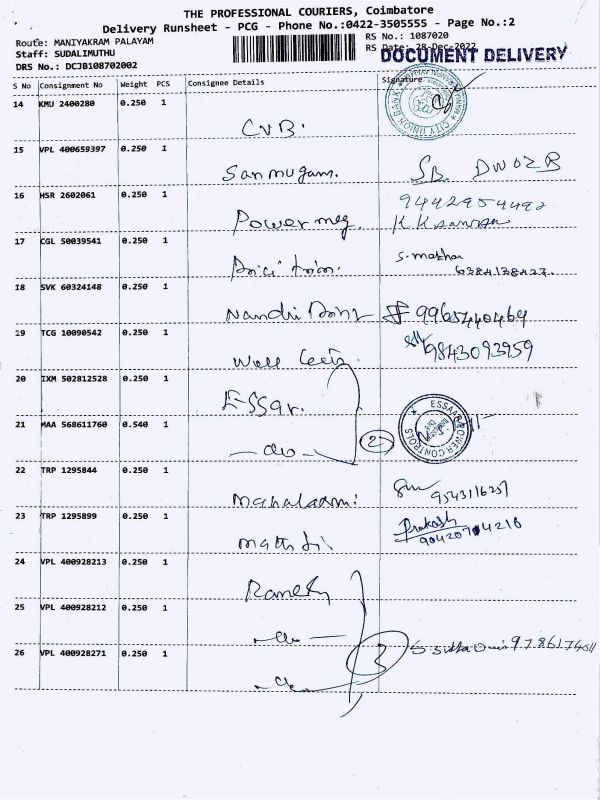 THE PROFESSIONAL COURIERS, Coimbatore
Delivery Runsheet - PCG - Phone No.:0422-3505555 - Page No.:2
Route: MANIYAKRAM PALAYAM
RS No.: 1087020
Staff: SUDALIMUTHU
RS Date: 28-Dec-2022
DOCUMENT DELIVERY
DRS No.: DCJB108702002
S No Consignment No Weight PCS Consignee Details Signature
14 KMU 2400280 0.250 1
CITY UNION BANK
CUB.
15 VPL 400659397 0.250 1
Sanmugam.
16 HSR 2602061 0.250 1
9442954492
Powermeg.
17 CGL 50039541 0.250 1
18 SVK 60324148 0.250 1
9965440469
19 TCG 10090542 0.250 1
9843093959
20 IXM 502812528 0.250 1
Essar.
21 MAA 568611760 0.540 1
ESSAAR POWER CONTROLS
-do- 2
22 TRP 1295844 0.250 1
9543116257
23 TRP 1295899 0.250 1
Prakash
9042074216
24 VPL 400928213 0.250 1
Ramesh
25 VPL 400928212 0.250 1
-do-
26 VPL 400928271 0.250 1
3
-do-